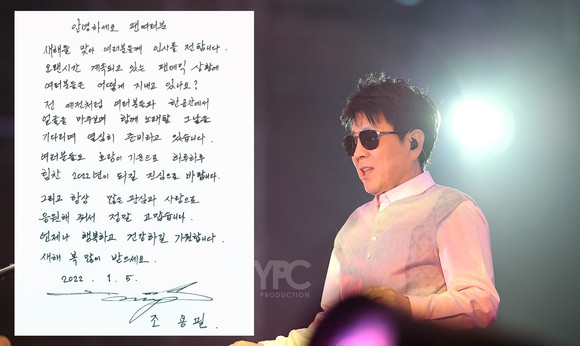 안녕하세요 팬여러분
새해를 맞아 여러분들께 인사를 전합니다.
오랜시간 계속되고 있는 팬데믹 상황에
여러분들은 어떻게 지내고 있나요?
전 예전처럼 여러분들과 한공간에서
얼굴을 마주보며 함께 노래할 그날을
기다리며 열심히 준비하고 있습니다.
여러분들도 호랑이 기운으로 하루하루
힘찬 2022년이 되길 진심으로 바랍니다.
그리고 항상 많은 관심과 사랑으로
응원해 줘서 정말 고맙습니다.
언제나 행복하고 건강하길 기원합니다.
새해 복 많이 받으세요.
2022. 1. 5.
조 용 필.
YPC
PRODUCTION